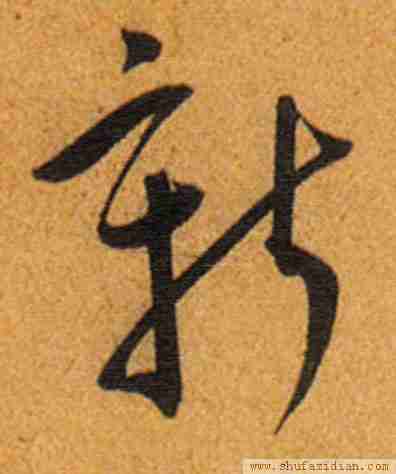 新
www.shufazidian.com